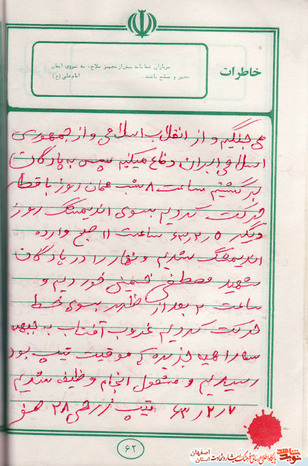 خاطرات
سربازان شما باید بیش از تجهیز سلاح، به نیروی ایمان
مجهز و مسلح باشند.
امام علی (ع)
می جنگیم و از انقلاب اسلامی و از جمهوری
اسلامی ایران دفاع میکنیم سپس به پادگان
برگشتیم ساعت ۸ شب همان روز با قطار
حرکت کردیم بسوی اندیمشک روز
دیگر ۶۳/۲/۵ ساعت ۱۱ صبح وارده
اندیمشک شدیم و نهار را در پادگان
شهید مصطفی خمینی خوردیم و
ساعت ۲ بعد از ظهر بسوی خط
حرکت کردیم غروب آفتاب به جبهه
که موقعیت تیپ بود
رسیدیم و مشغول انجام وظیفه شدیم
۶۳/۲/۷ تیپ زرهی ۲۸ صفر
۶۲
اصفهان